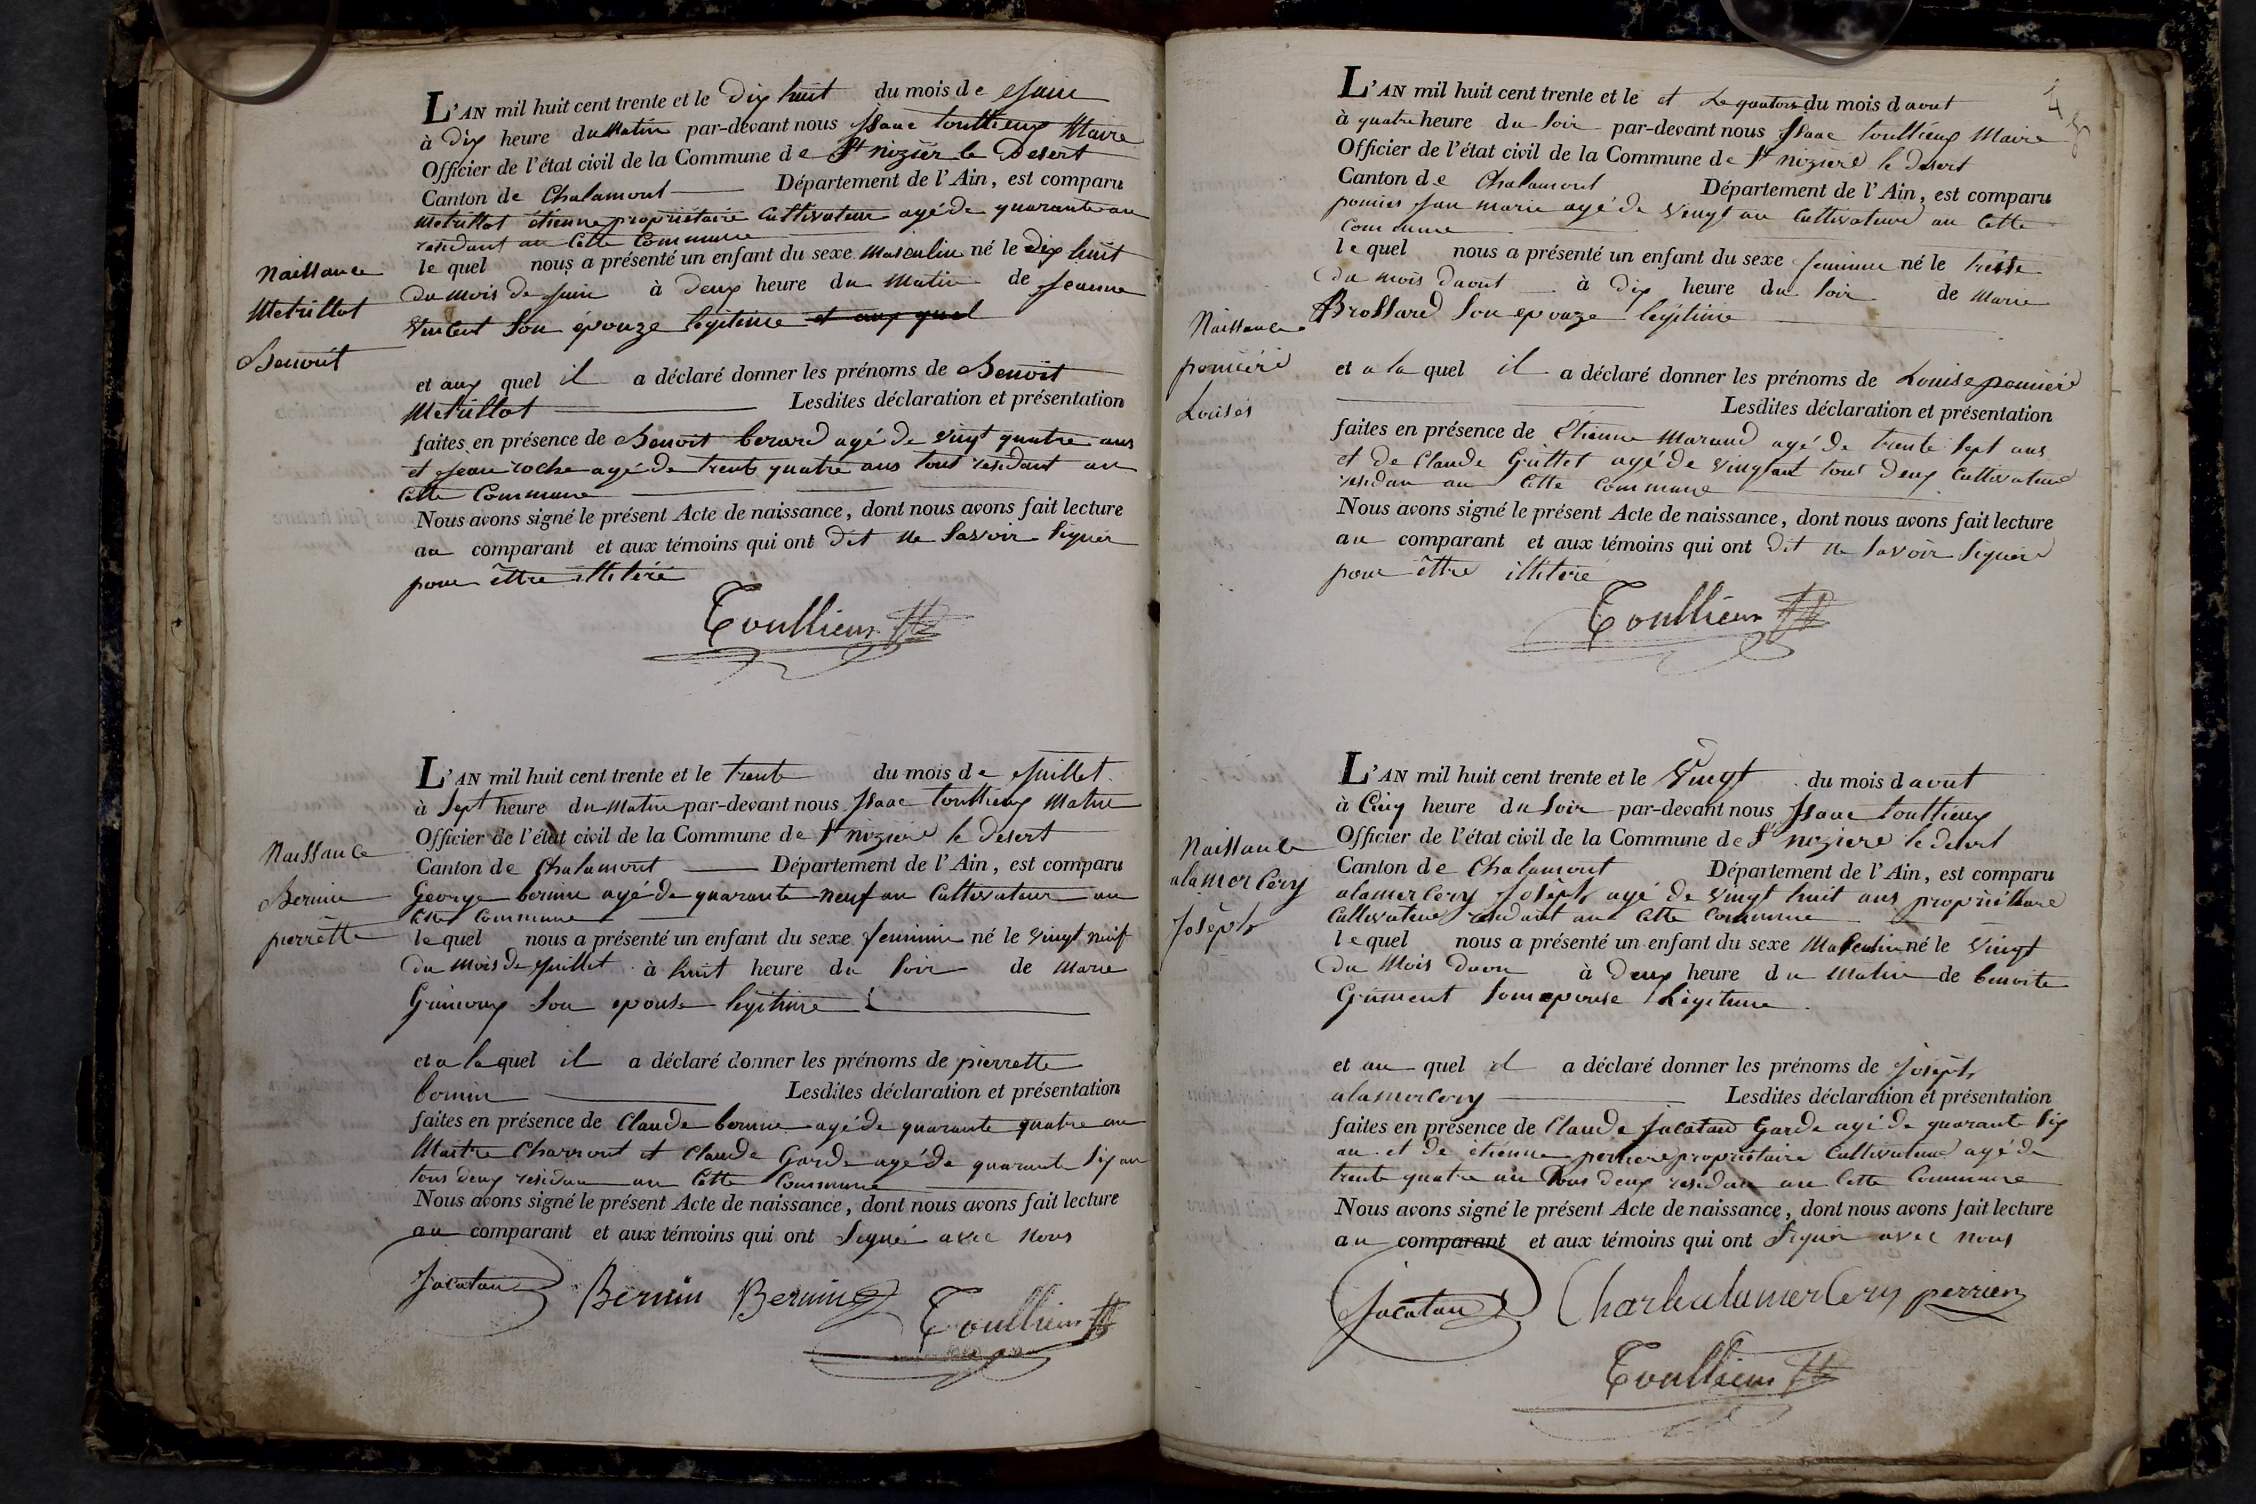 L'AN mil huit cent trente et le Dix huit du mois de Juin
à Dix heure du Matin par-devant nous Isaac Toullieux Maire
Officier de l'état civil de la Commune de St nizier le Desert
Canton de Chalamont Département de l'Ain, est comparu
Metrillot étienne propriétaire Cultivateur agé de quarante an
residant an Cette Commune
Naissance
le quel nous a présenté un enfant du sexe Masculin né le Dix huit
du mois de Juin à Deux heure du Matin de Jeanne
Metrillot
Vincent Son épouze legitime et aux quel
Benoit
et aux quel il a déclaré donner les prénoms de Benoit
Metrillot Lesdites déclaration et présentation
faites en présence de Benoit berard agé de vingt quatre ans
et Jean roche agé de trente quatre ans tout residant an
Cette Commune
Nous avons signé le présent Acte de naissance, dont nous avons fait lecture
au comparant et aux témoins qui ont Dit ne Savoir Signer
pour êttre illitéré
Toullieux
L'AN mil huit cent trente et le trente du mois de Juillet
à Sept heure du matin par-devant nous Isaac Toullieux Maire
Officier de l'état civil de la Commune de St niziere le Desert
Naissance
Canton de Chalamont Département de l'Ain, est comparu
Bernin
George bernin agé de quarante neuf an Cultivateur an
Cette Commune
pierrette
le quel nous a présenté un enfant du sexe feminin né le vingt neuf
du mois de Juillet à huit heure du Soir de Marie
Son epouse legitime
et a la quel il a déclaré donner les prénoms de pierrette
bernin Lesdites déclaration et présentation
faites en présence de Claude bernin agé de quarante quatre an
Maitre Charront et Claude Garde agé de quarante Six an
tous deux residan an Cette Commune
Nous avons signé le présent Acte de naissance, dont nous avons fait lecture
au comparant et aux témoins qui ont Signé avec nous
Jacatan Bernin Bernin
Toullieux
4
L'AN mil huit cent trente et le et Le quatorze du mois d aout
à quatre heure du Soir par-devant nous Isaac Toullieux Maire
Officier de l'état civil de la Commune de St niziere le desert
Canton de Chalamont Département de l'Ain, est comparu
pomier Jean marie agé de vingt an Cultivateur an Cette
Commune
le quel nous a présenté un enfant du sexe feminin né le treise
du mois daout à dix heure du Soir de Marie
Naissance
Brossard Son epouze legitime
pomiere
et a la quel il a déclaré donner les prénoms de Louise pomiere
Louise
Lesdites déclaration et présentation
faites en présence de Etienne Marand agé de trente Sept ans
et de Claude Grillet agé de vingt ant tous Deux Cultivateur
residan an Cette Commune
Nous avons signé le présent Acte de naissance, dont nous avons fait lecture
au comparant et aux témoins qui ont Dit ne Savoir Signer
pour êttre illiteré
Toullieux
L'AN mil huit cent trente et le Vingt du mois d aout
à Cinq heure du Soir par-devant nous Isaac Toullieux
Officier de l'état civil de la Commune de St niziere le desert
Naissance
Canton de Chalamont Département de l'Ain, est comparu
alamercery
alamercery Joseph agé de vingt huit ans propriettaire
Cultivateur residant an Cette Commune
Joseph
le quel nous a présenté un enfant du sexe Masculin né le Vingt
du Mois Daou à Deux heure du Matin de benoite
Grument Son epouse Légitime
et au quel il a déclaré donner les prénoms de Joseph
alamercery Lesdites déclaration et présentation
faites en présence de Claude Jacatan Garde agé de quarante Six
an et de étienne perriere propriétaire Cultivateur agé de
trente quatre an Tous deux residan an Cette Commune
Nous avons signé le présent Acte de naissance, dont nous avons fait lecture
au comparant et aux témoins qui ont Signer avec nous
Jacatan Charle alamercery perrier
Toullieux